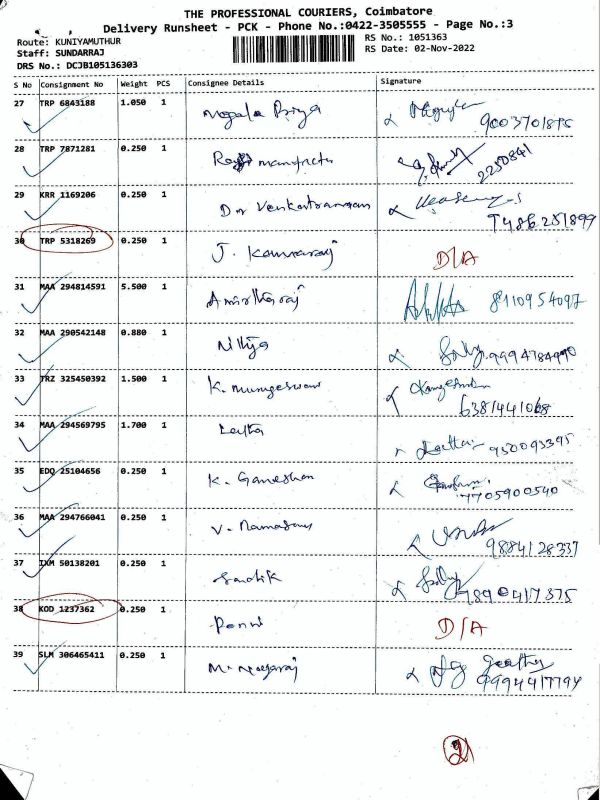 THE PROFESSIONAL COURIERS, Coimbatore
Delivery Runsheet - PCK - Phone No.:0422-3505555 - Page No.:3
Route: KUNIYAMUTHUR
Staff: SUNDARRAJ
DRS No.: DCJB105136303
RS No.: 1051363
RS Date: 02-Nov-2022
S No Consignment No Weight PCS Consignee Details Signature
27 TRP 6843188 1.050 1 Megala Priya
28 TRP 7871281 0.250 1 2250841
29 KRR 1169206 0.250 1 Dr Venkatraman
30 TRP 5318269 0.250 1 J. Kamaraj D/A
31 MAA 294814591 5.500 1 Amirtharaj 8110954097
32 MAA 290542148 0.880 1 Nithya 9994784990
33 TRZ 325450392 1.500 1 K. Murugeswari 6381441068
34 MAA 294569795 1.700 1 Latha
35 EDQ 25104656 0.250 1 K. Ganeshan 7705900540
36 MAA 294766041 0.250 1 V. 9884128337
37 IXM 50138201 0.250 1
38 KOD 1237362 0.250 1 Ponni D/A
39 SLM 306465411 0.250 1 M. Nagaraj 9994417794
2